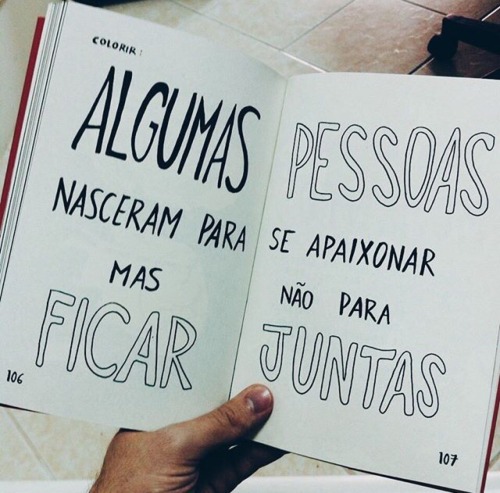 COLORIR:
ALGUMAS PESSOAS
NASCERAM PARA SE APAIXONAR
MAS NÃO PARA
FICAR JUNTAS
106
107